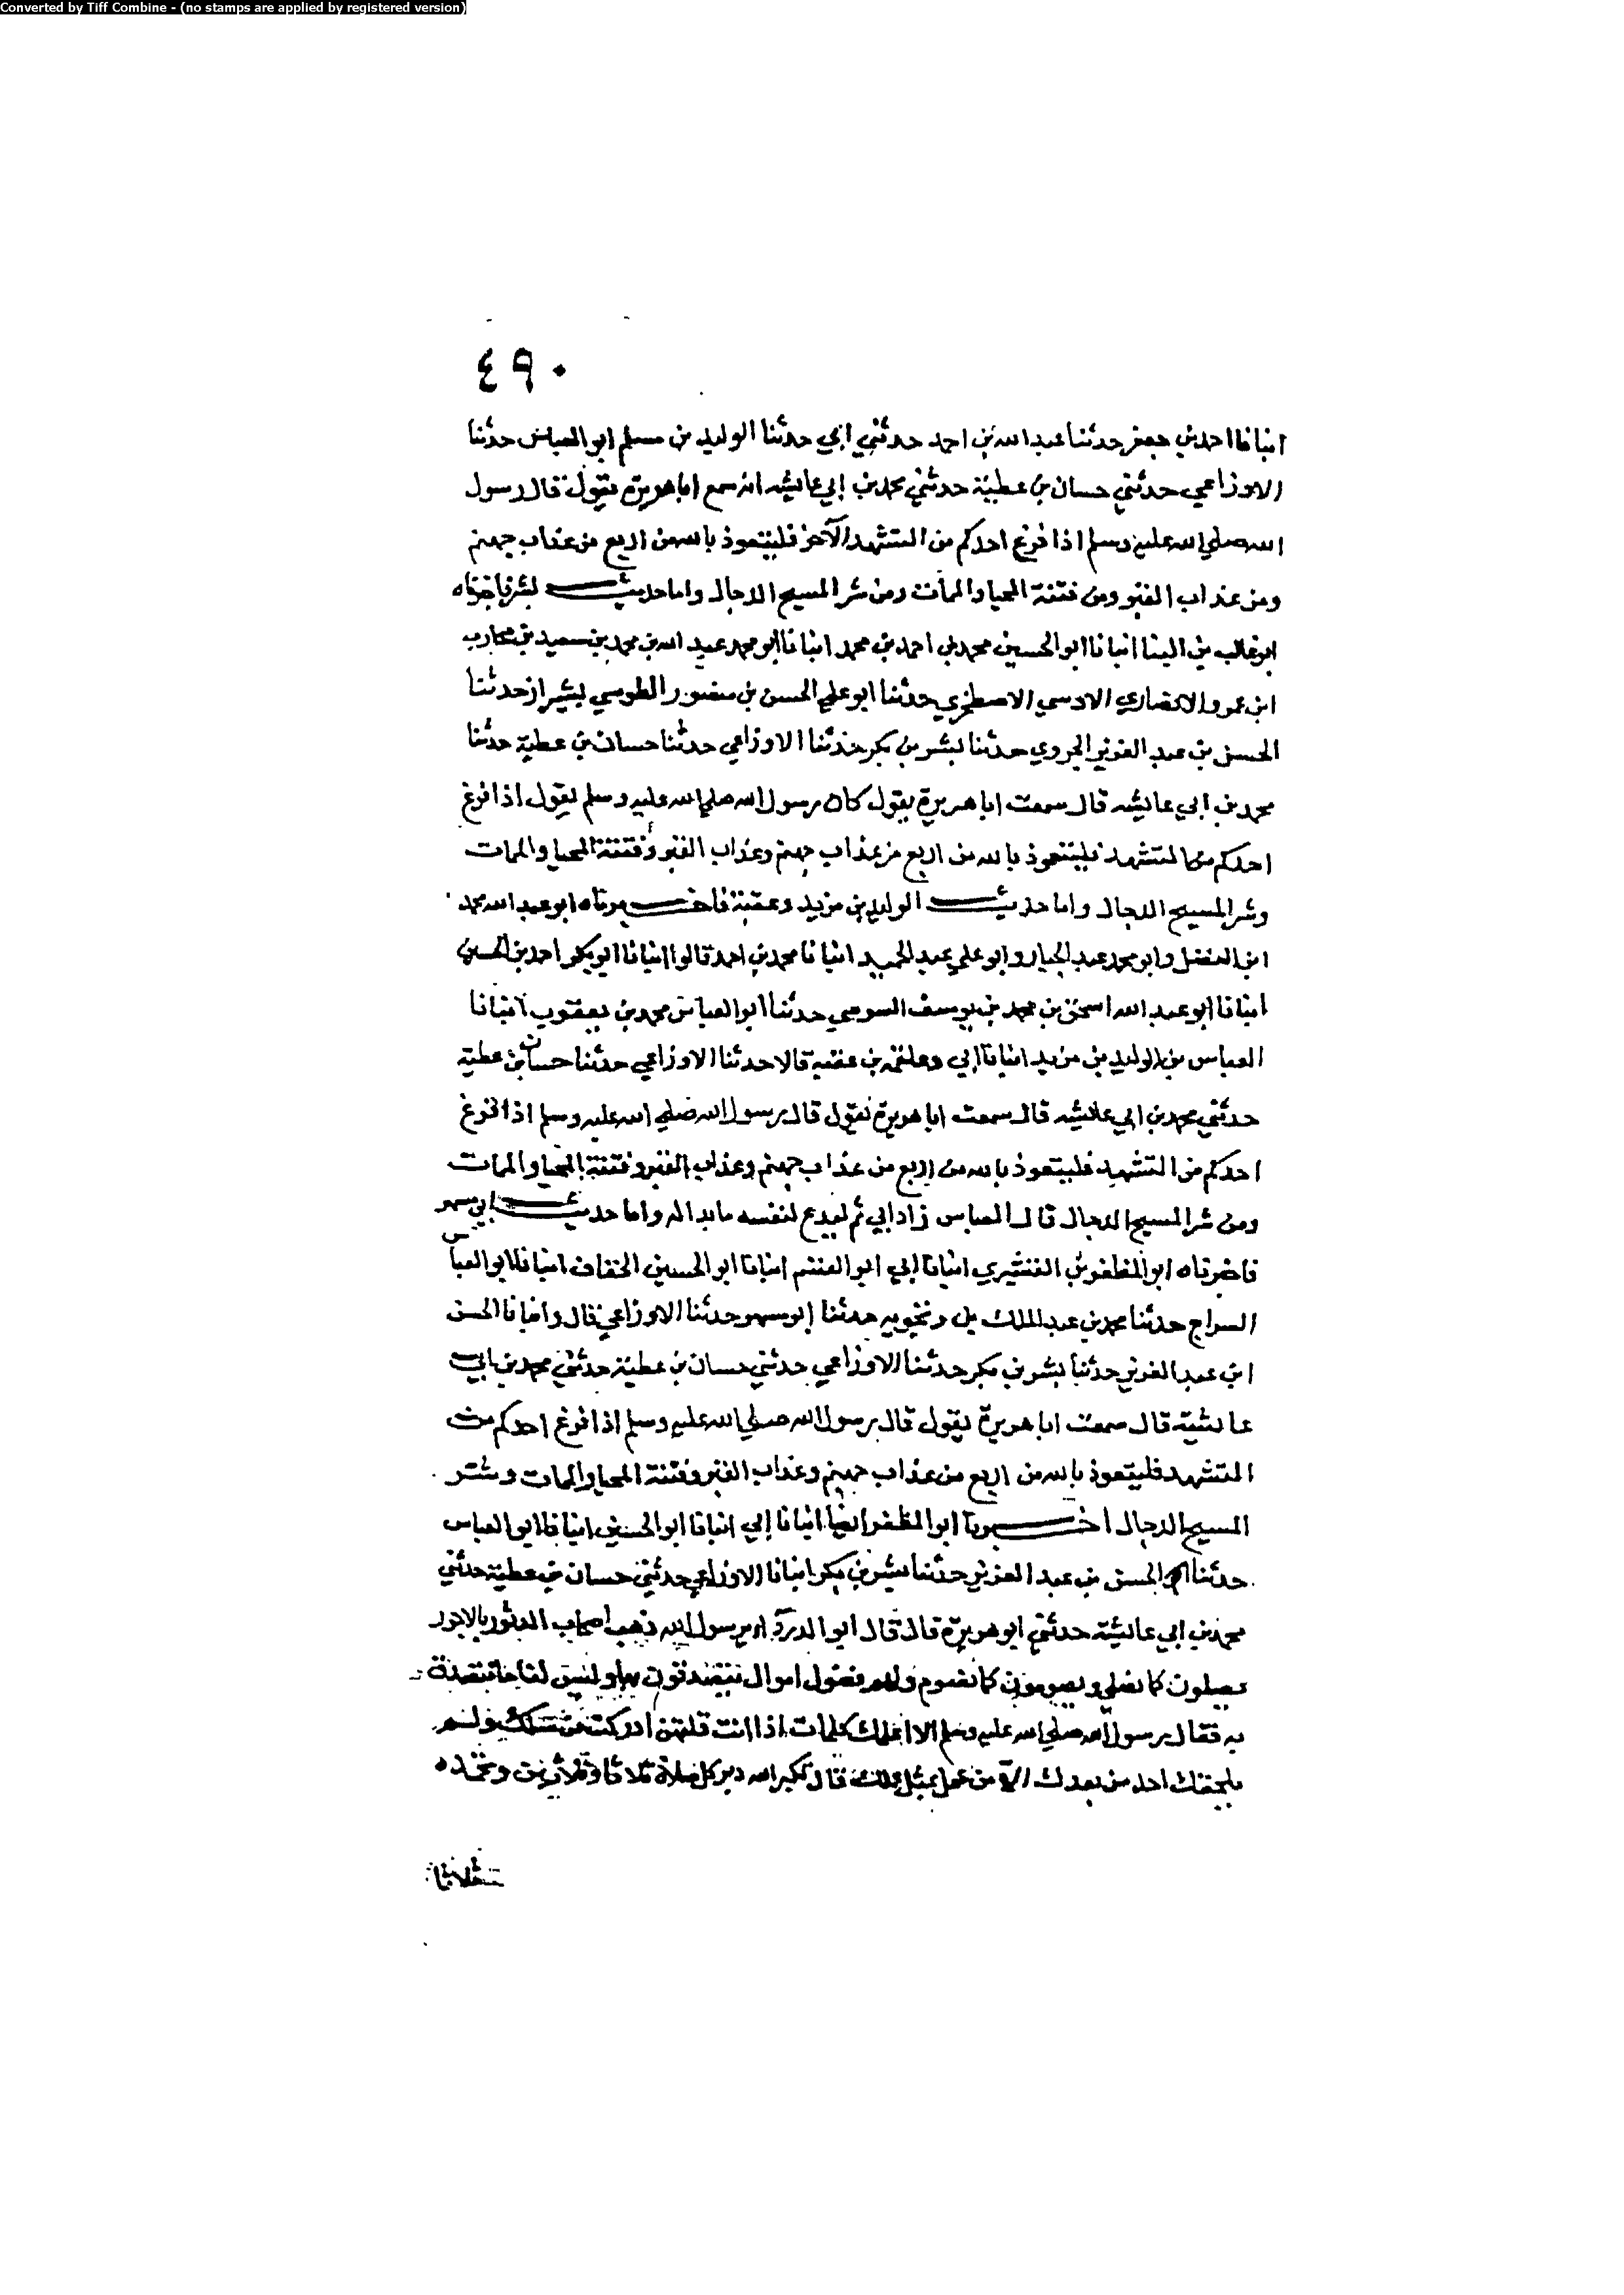 Converted by Tiff Combine - (no stamps are applied by registered version)
٤٩٠
انبانا احمد بن جعفر حدثنا عبد الله بن احمد حدثني ابي حدثنا الوليد بن مسلم ابو العباس حدثنا
الاوزاعي حدثني حسان بن عطية حدثني محمد بن ابي عائشه انه سمع ابا هريرة يقول قال رسول
الله صلى الله عليه وسلم اذا فرغ احدكم من التشهد الآخر فليتعوذ بالله من اربع من عذاب جهنم
ومن عذاب القبر ومن فتنة المحيا والممات ومن شر المسيح الدجال واما حديث بشر فاخبرناه
ابو غالب بن البنا انبانا ابو الحسين محمد بن احمد بن محمد انبانا ابو محمد عبد الله بن محمد بن سعيد بن محارب
ابن عمرو الانصاري الاوسي الاصطخري حدثنا ابو علي الحسن بن منصور الطوسي بشيراز حدثنا
الحسن بن عبد العزيز الجروي حدثنا بشر بن بكر حدثنا الاوزاعي حدثنا حسان بن عطية حدثنا
محمد بن ابي عائشه قال سمعت ابا هريرة يقول كان رسول الله صلى الله عليه وسلم يقول اذا فرغ
احدكم من التشهد فليتعوذ بالله من اربع من عذاب جهنم وعذاب القبر وفتنة المحيا والممات
وشر المسيح الدجال واما حديث الوليد بن مزيد وعقبة فاخبرناه ابو عبد الله محمد
ابن الفضل وابو محمد عبد الجبار وابو علي عبد الحميد انبانا محمد بن احمد قالوا انبانا ابو بكر احمد بن الحسين
انبانا ابو عبد الله اسحق بن محمد بن يوسف السوسي حدثنا ابو العباس محمد بن يعقوب انبانا
العباس بن الوليد بن مزيد انبانا ابي وعلقمه بن عقبه قالا حدثنا الاوزاعي حدثنا حسان بن عطية
حدثني محمد بن ابي عائشه قال سمعت ابا هريرة يقول قال رسول الله صلى الله عليه وسلم اذا فرغ
احدكم من التشهد فليتعوذ بالله من اربع من عذاب جهنم وعذاب القبر وفتنة المحيا والممات
ومن شر المسيح الدجال قال العباس زاد ابي ثم ليدع لنفسه ما بدا له واما حديث ابي مسهر
فاخبرناه ابو المظفر بن القشيري انبانا ابي ابو القسم انبانا ابو الحسين الخفاف انبانا ابو العباس
السراج حدثنا محمد بن عبد الملك بن زنجويه حدثنا ابو مسهر حدثنا الاوزاعي قال وانبانا الحسن
ابن عبد العزيز حدثنا بشر بن بكر حدثنا الاوزاعي حدثني حسان بن عطية حدثني محمد بن ابي
عائشة قال سمعت ابا هريرة يقول قال رسول الله صلى الله عليه وسلم اذا فرغ احدكم من
التشهد فليتعوذ بالله من اربع من عذاب جهنم وعذاب القبر وفتنة المحيا والممات وشر
المسيح الدجال اخبرنا ابو المظفر ايضا انبانا ابي انبانا ابو الحسين انبانا ابو العباس
حدثنا الحسن بن عبد العزيز حدثنا بشر بن بكر انبانا الاوزاعي حدثني حسان بن عطية حدثني
محمد بن ابي عائشة حدثني ابو هريرة قال قال ابو الدرداء يا رسول الله ذهب اصحاب الدثور بالاجور
يصلون كما نصلي ويصومون كما نصوم ولهم فضول اموال يتصدقون بها وليس لنا ما نتصدق
به فقال رسول الله صلى الله عليه وسلم الا اعلمك كلمات اذا انت قلتهن ادركت من سبقك ولم
يلحقك احد من بعدك الا من عمل بمثل عملك قال تكبر الله دبر كل صلاة ثلاثا وثلاثين وتحمده
ثلاثا